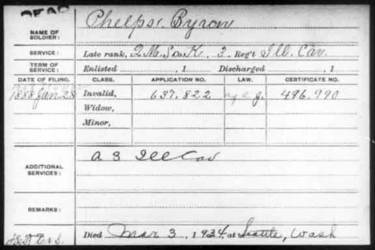 DEAD
NAME OF SOLDIER: Phelps, Byron
SERVICE: Late rank, Q.M.S. Co. K, 3 Reg't Ill. Cav.
TERM OF SERVICE: Enlisted , 1 Discharged , 1
DATE OF FILING. CLASS. APPLICATION NO. LAW. CERTIFICATE NO.
1888 Jan 28 Invalid, 637.822 486.990
Widow,
Minor,
ADDITIONAL SERVICES: A 8 Ill Cav
REMARKS:
Died Mar 3, 1924, at Seattle, Wash